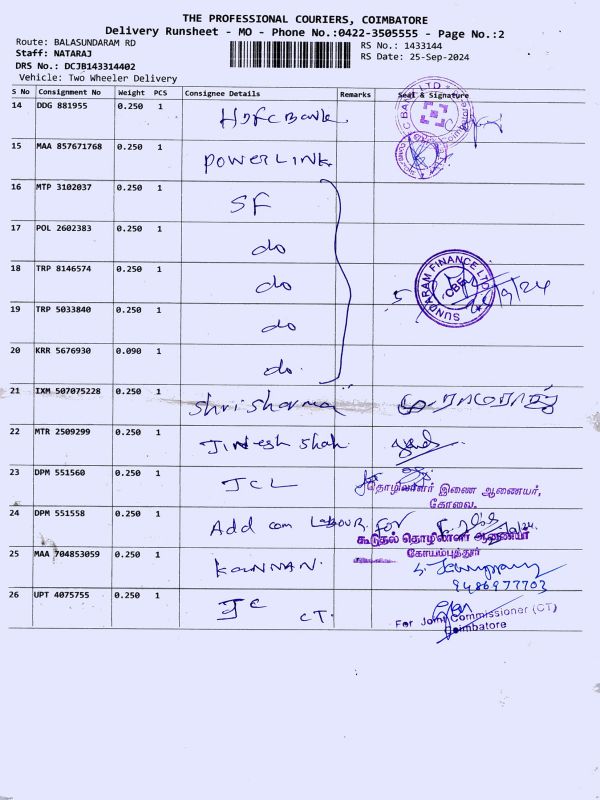 THE PROFESSIONAL COURIERS, COIMBATORE
Delivery Runsheet - MO - Phone No.:0422-3505555 - Page No.:2
Route: BALASUNDARAM RD
RS No.: 1433144
Staff: NATARAJ
RS Date: 25-Sep-2024
DRS No.: DCJB143314402
Vehicle: Two Wheeler Delivery
S No Consignment No Weight PCS Consignee Details Remarks Seal & Signature
14 DDG 881955 0.250 1 Hdfc Bank
15 MAA 857671768 0.250 1 POWERLINK
16 MTP 3102037 0.250 1 SF
17 POL 2602383 0.250 1 do
18 TRP 8146574 0.250 1 do
SUNDARAM FINANCE LTD
19 TRP 5033840 0.250 1 do
20 KRR 5676930 0.090 1 do.
21 IXM 507075228 0.250 1 Shri Sharma
22 MTR 2509299 0.250 1 Jinesh Shah.
23 DPM 551560 0.250 1 JCL
தொழிலாளர் இணை ஆணையர்,
கோவை.
24 DPM 551558 0.250 1 Add com Labour. For
கூடுதல் தொழிலாளர் ஆணையர்
கோயம்புத்தூர்
25 MAA 704853059 0.250 1 KANNAN.
9486977703
26 UPT 4075755 0.250 1 JC CT.
For Joint Commissioner (CT)
Coimbatore